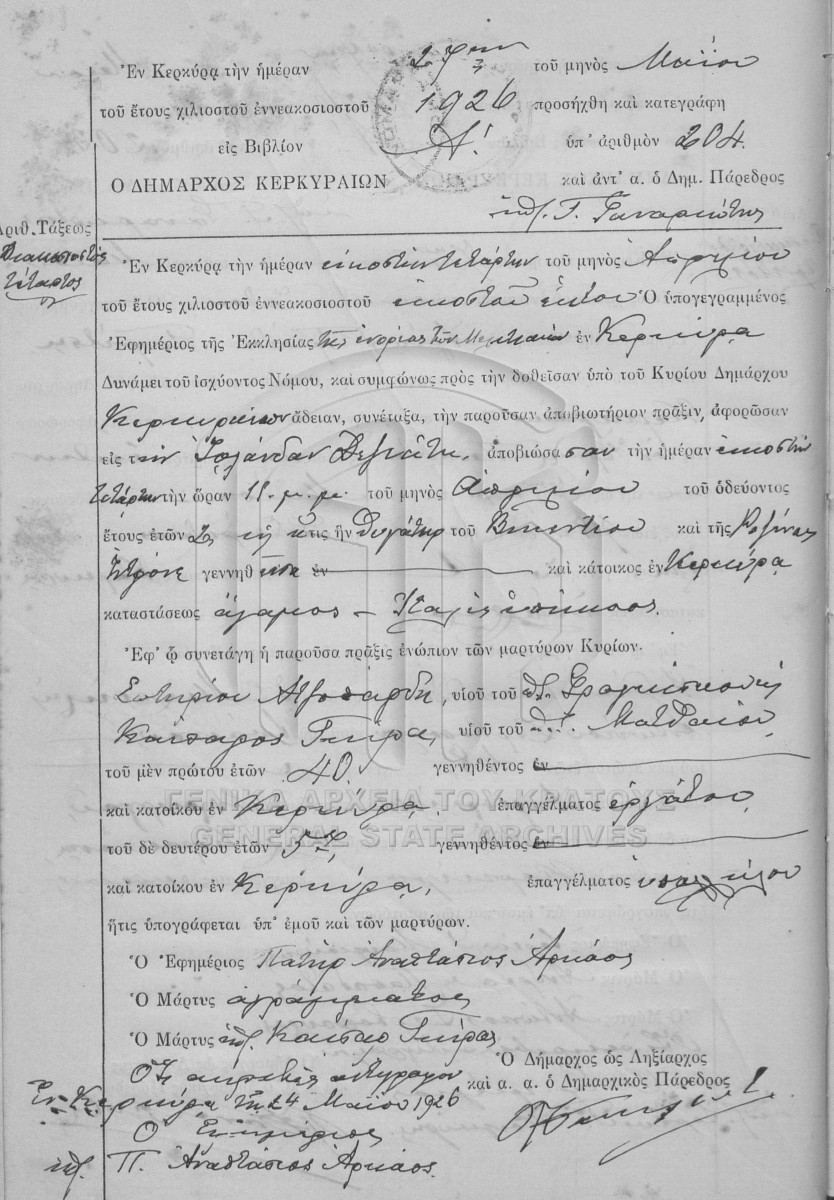 Ἐν Κερκύρᾳ τὴν ἡμέραν 27ην τοῦ μηνὸς Μαΐου
τοῦ ἔτους χιλιοστοῦ ἐννεακοσιοστοῦ 1926 προσήχθη καὶ κατεγράφη
εἰς Βιβλίον Α! ὑπ' ἀριθμὸν 204.
Ο ΔΗΜΑΡΧΟΣ ΚΕΡΚΥΡΑΙΩΝ καὶ ἀντ' α. ὁ Δημ. Πάρεδρος
Ἀριθ. Τάξεως
Διακοσιοστὸς
τέταρτος
Ἐν Κερκύρᾳ τὴν ἡμέραν εἰκοστὴν τετάρτην τοῦ μηνὸς Ἀπριλίου
τοῦ ἔτους χιλιοστοῦ ἐννεακοσιοστοῦ εἰκοστοῦ ἕκτου Ὁ ὑπογεγραμμένος
Ἐφημέριος τῆς Ἐκκλησίας τῆς ἐνορίας τῶν ἐν Κερκύρᾳ
Δυνάμει τοῦ ἰσχύοντος Νόμου, καὶ συμφώνως πρὸς τὴν δοθεῖσαν ὑπὸ τοῦ Κυρίου Δημάρχου
Κερκυραίων ἄδειαν, συνέταξα, τὴν παροῦσαν ἀποβιωτήριον πρᾶξιν, ἀφορῶσαν
εἰς τὴν Ἰολάνδαν ἀποβιώσασαν τὴν ἡμέραν εἰκοστὴν
τετάρτην τὴν ὥραν 11. μ. μ. τοῦ μηνὸς Ἀπριλίου τοῦ ὁδεύοντος
ἔτους ἐτῶν ἥτις ἦν θυγάτηρ τοῦ Βικεντίου καὶ τῆς Ροζίνας
γεννηθεῖσα ἐν καὶ κάτοικος ἐν Κερκύρᾳ
καταστάσεως ἄγαμος – Ἰταλὶς ὑπήκοος.
Ἐφ' ᾧ συνετάγη ἡ παροῦσα πρᾶξις ἐνώπιον τῶν μαρτύρων Κυρίων.
Σωτηρίου Ἀτζοπάρδη, υἱοῦ τοῦ Φραγκίσκου
Καίσαρος υἱοῦ τοῦ Ματθαίου
τοῦ μὲν πρώτου ἐτῶν 40 γεννηθέντος ἐν
καὶ κατοίκου ἐν Κερκύρᾳ, ἐπαγγέλματος ἐργάτου
ΓΕΝΙΚΑ ΑΡΧΕΙΑ ΤΟΥ ΚΡΑΤΟΥΣ
GENERAL STATE ARCHIVES
τοῦ δὲ δευτέρου ἐτῶν γεννηθέντος ἐν
καὶ κατοίκου ἐν Κερκύρᾳ, ἐπαγγέλματος ὑπαλλήλου
ἥτις ὑπογράφεται ὑπ' ἐμοῦ καὶ τῶν μαρτύρων.
Ὁ Ἐφημέριος Πατὴρ Ἀναστάσιος
Ὁ Μάρτυς ἀγράμματος
Ὁ Μάρτυς Καίσαρ
Ὅτι ἀκριβὲς ἀντίγραφον
Ἐν Κερκύρᾳ τῇ 24 Μαΐου 1926
Ὁ Ἐφημέριος
Π. Ἀναστάσιος
Ὁ Δήμαρχος ὡς Ληξίαρχος
καὶ α. α. ὁ Δημαρχικὸς Πάρεδρος